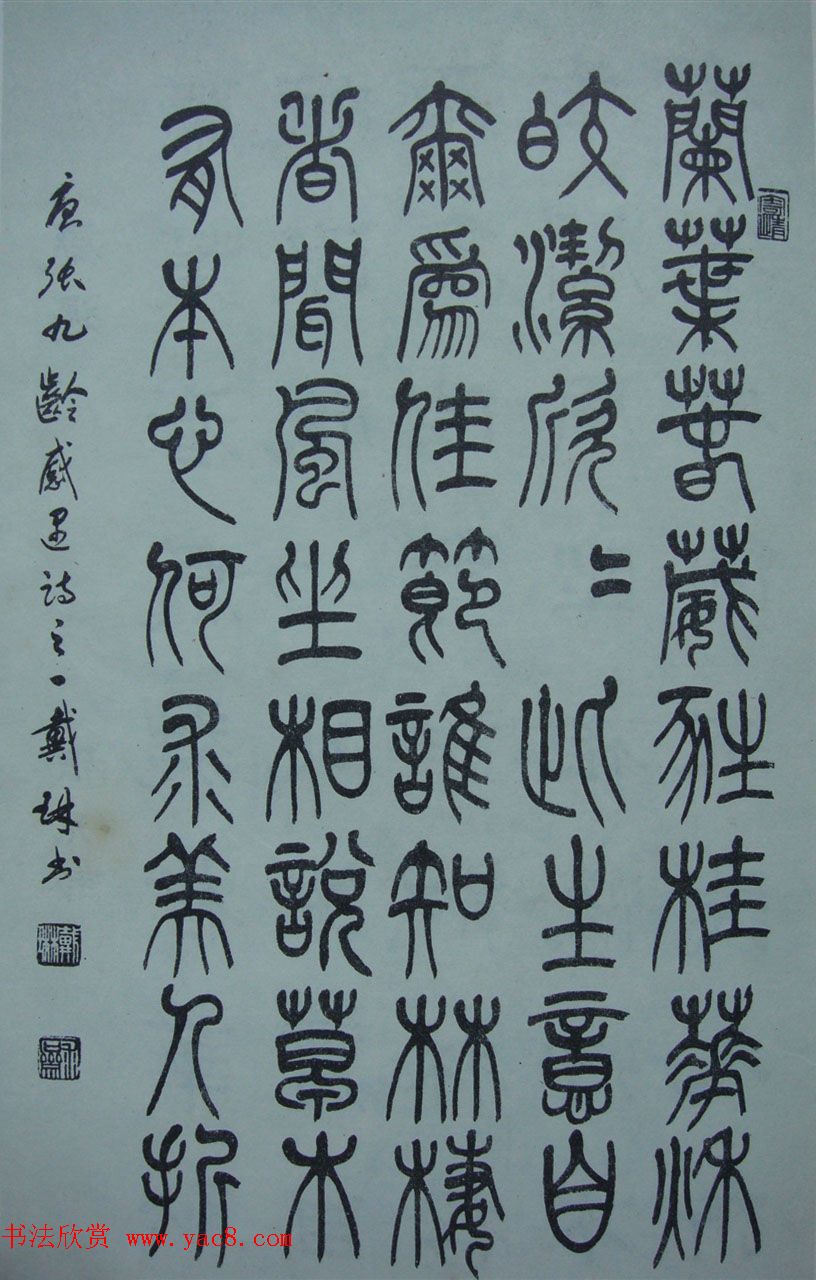 蘭葉春葳甤桂華秌
皎潔欣〻此生意自
爾爲佳節誰知林棲
者聞風坐相說草木
有本心何求美人折
唐张九齡感遇诗之一戴琳书
戴琳
书法欣赏 www.yac8.com